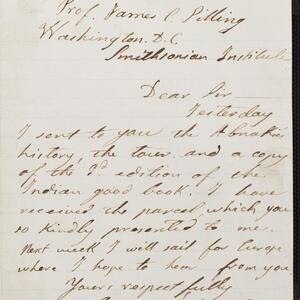 Prof. James C. Pilling
Washington. D.C.
Smithsonian Institute
Dear Sir—
Yesterday
I sent to you the Abnakis
history, the tower and a copy
of the 3d edition of the
Indian good book. I have
received the parcel, which you
so kindly presented to me.
Next week I will sail for Europe
where I hope to hear from you
Yours respectfully